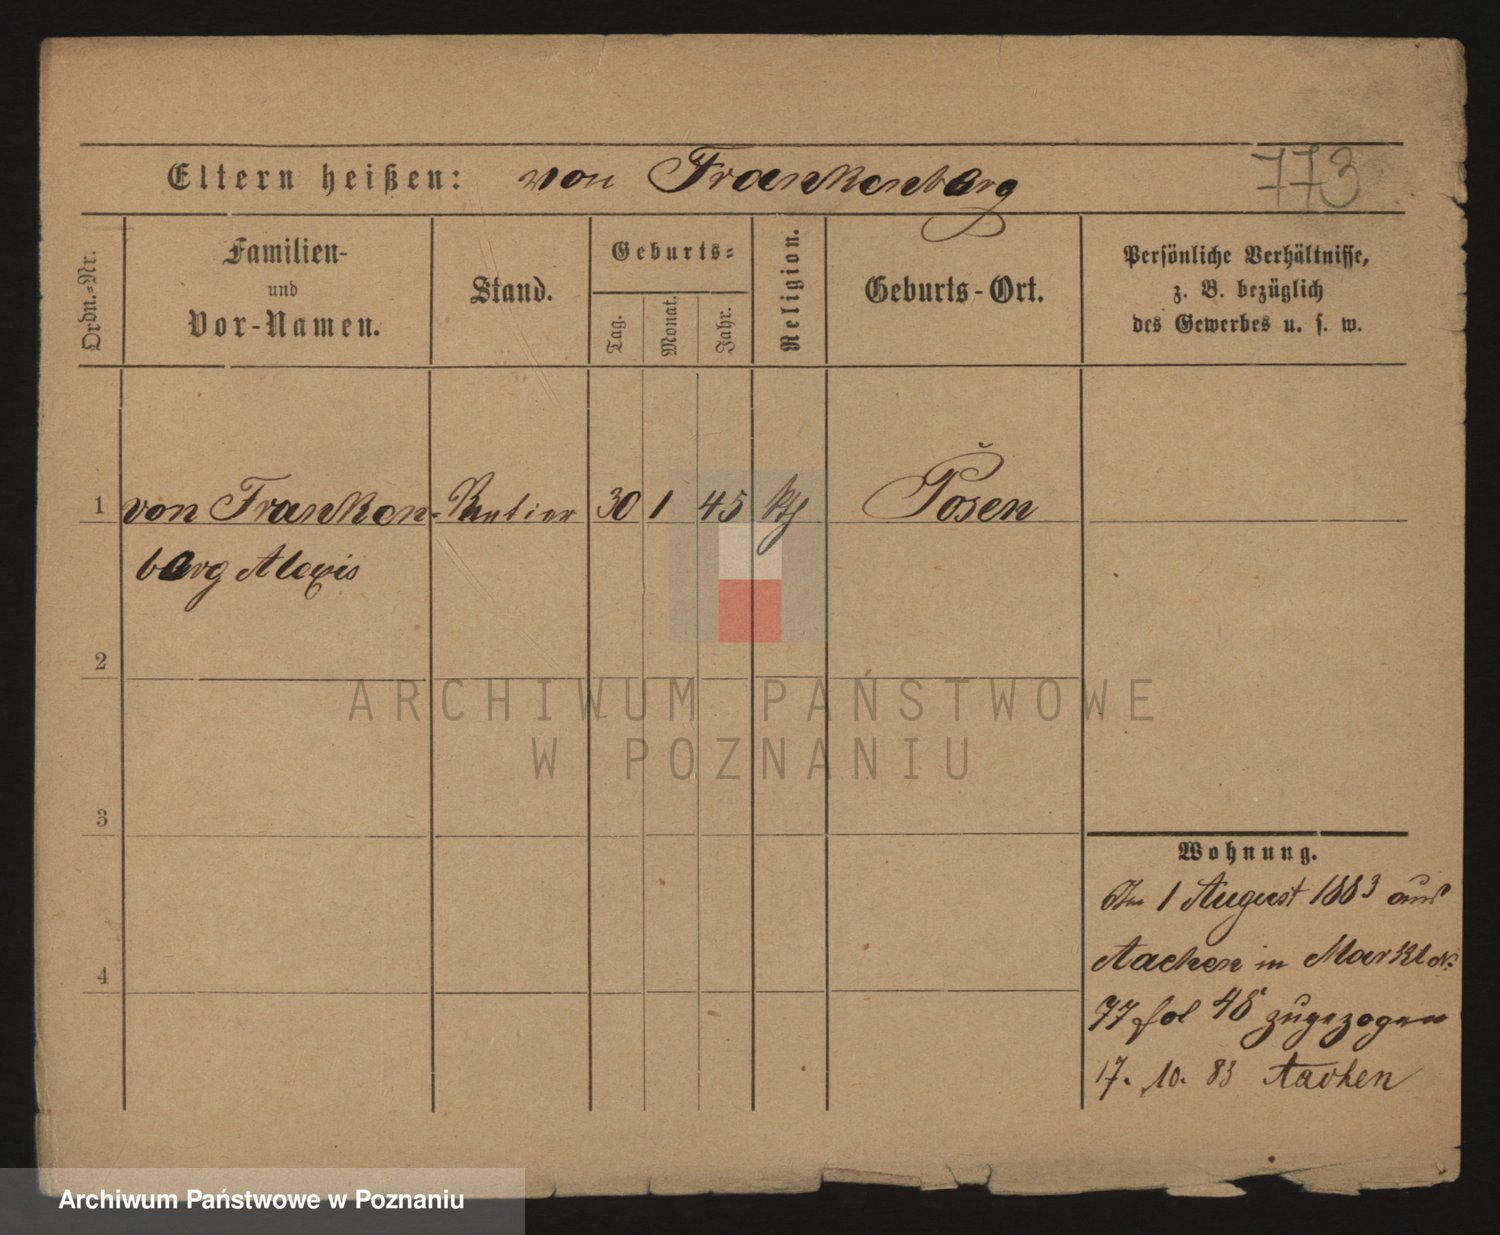 Eltern heißen: von Frankenberg 773
Ordn.-Nr.
Familien-
und
Vor-Namen.
Stand.
Geburts-
Tag.
Monat.
Jahr.
Religion.
Geburts-Ort.
Persönliche Verhältnisse,
z. B. bezüglich
des Gewerbes u. s. w.
1 von Franken- Rentier 30 1 45 kth Posen
berg Alexis
2
3
4
Wohnung.
Am 1 August 1883 aus
Aachen in Markt No
77 fol 48 zugezogen
17. 10. 83 Aachen
ARCHIWUM PAŃSTWOWE
W POZNANIU
Archiwum Państwowe w Poznaniu